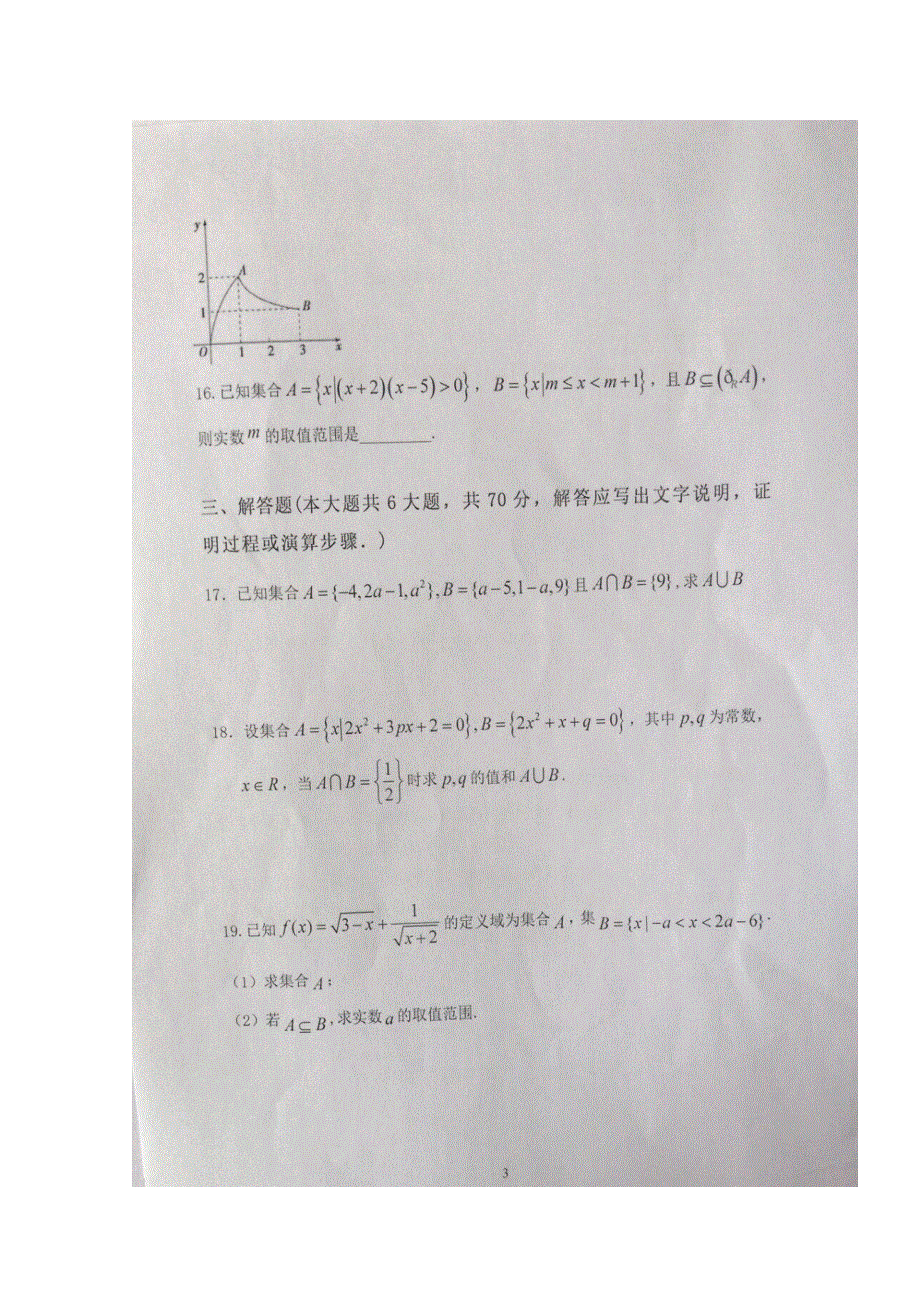 y
2
A
1
B
O 1 2 3 x
16.已知集合 A={x|(x+2)(x-5)>0}，B={x|m≤x<m+1}，且 B⊆(ð_R A)，
则实数 m 的取值范围是________.
三、解答题(本大题共 6 大题，共 70 分，解答应写出文字说明，证
明过程或演算步骤．)
17．已知集合 A={-4,2a-1,a²},B={a-5,1-a,9}且 A∩B={9},求 A∪B
18．设集合 A={x|2x²+3px+2=0},B={2x²+x+q=0}，其中 p,q 为常数，
x∈R，当 A∩B={1/2}时求 p,q 的值和 A∪B.
19.已知 f(x)=√(3-x)+1/√(x+2) 的定义域为集合 A，集 B={x|-a<x<2a-6}.
（1）求集合 A；
（2）若 A⊆B,求实数 a 的取值范围.
3